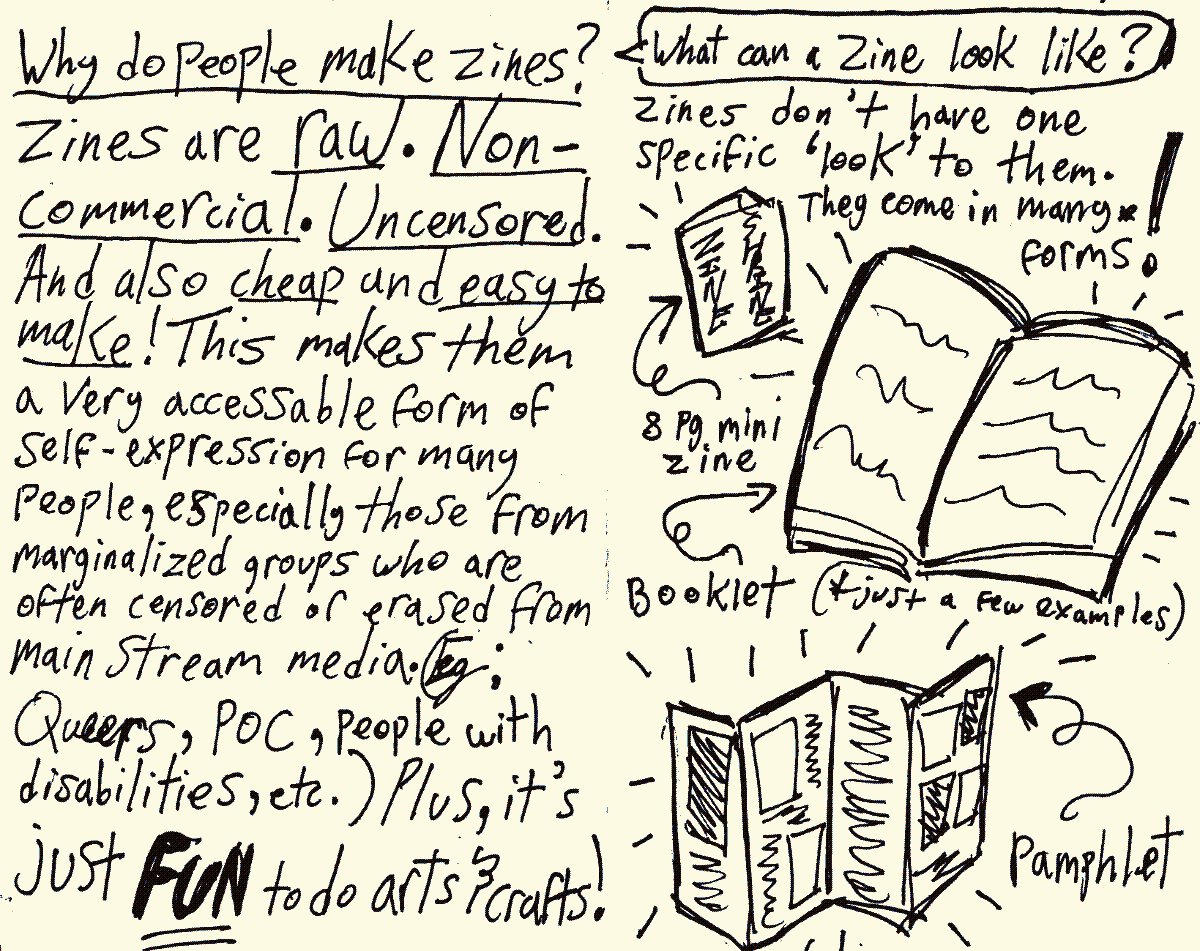 Why do people make zines?
Zines are raw. Non-
commercial. Uncensored.
And also cheap and easy to
make! This makes them
a very accessable form of
self-expression for many
people, especially those from
marginalized groups who are
often censored or erased from
main stream media. (eg;
Queers, POC, people with
disabilities, etc.) Plus, it's
just FUN to do arts & crafts!
What can a zine look like?
Zines don't have one
specific 'look' to them.
They come in many*
forms!
MINI
ZINE
8 pg. mini
zine
Booklet
(*just a few examples)
Pamphlet